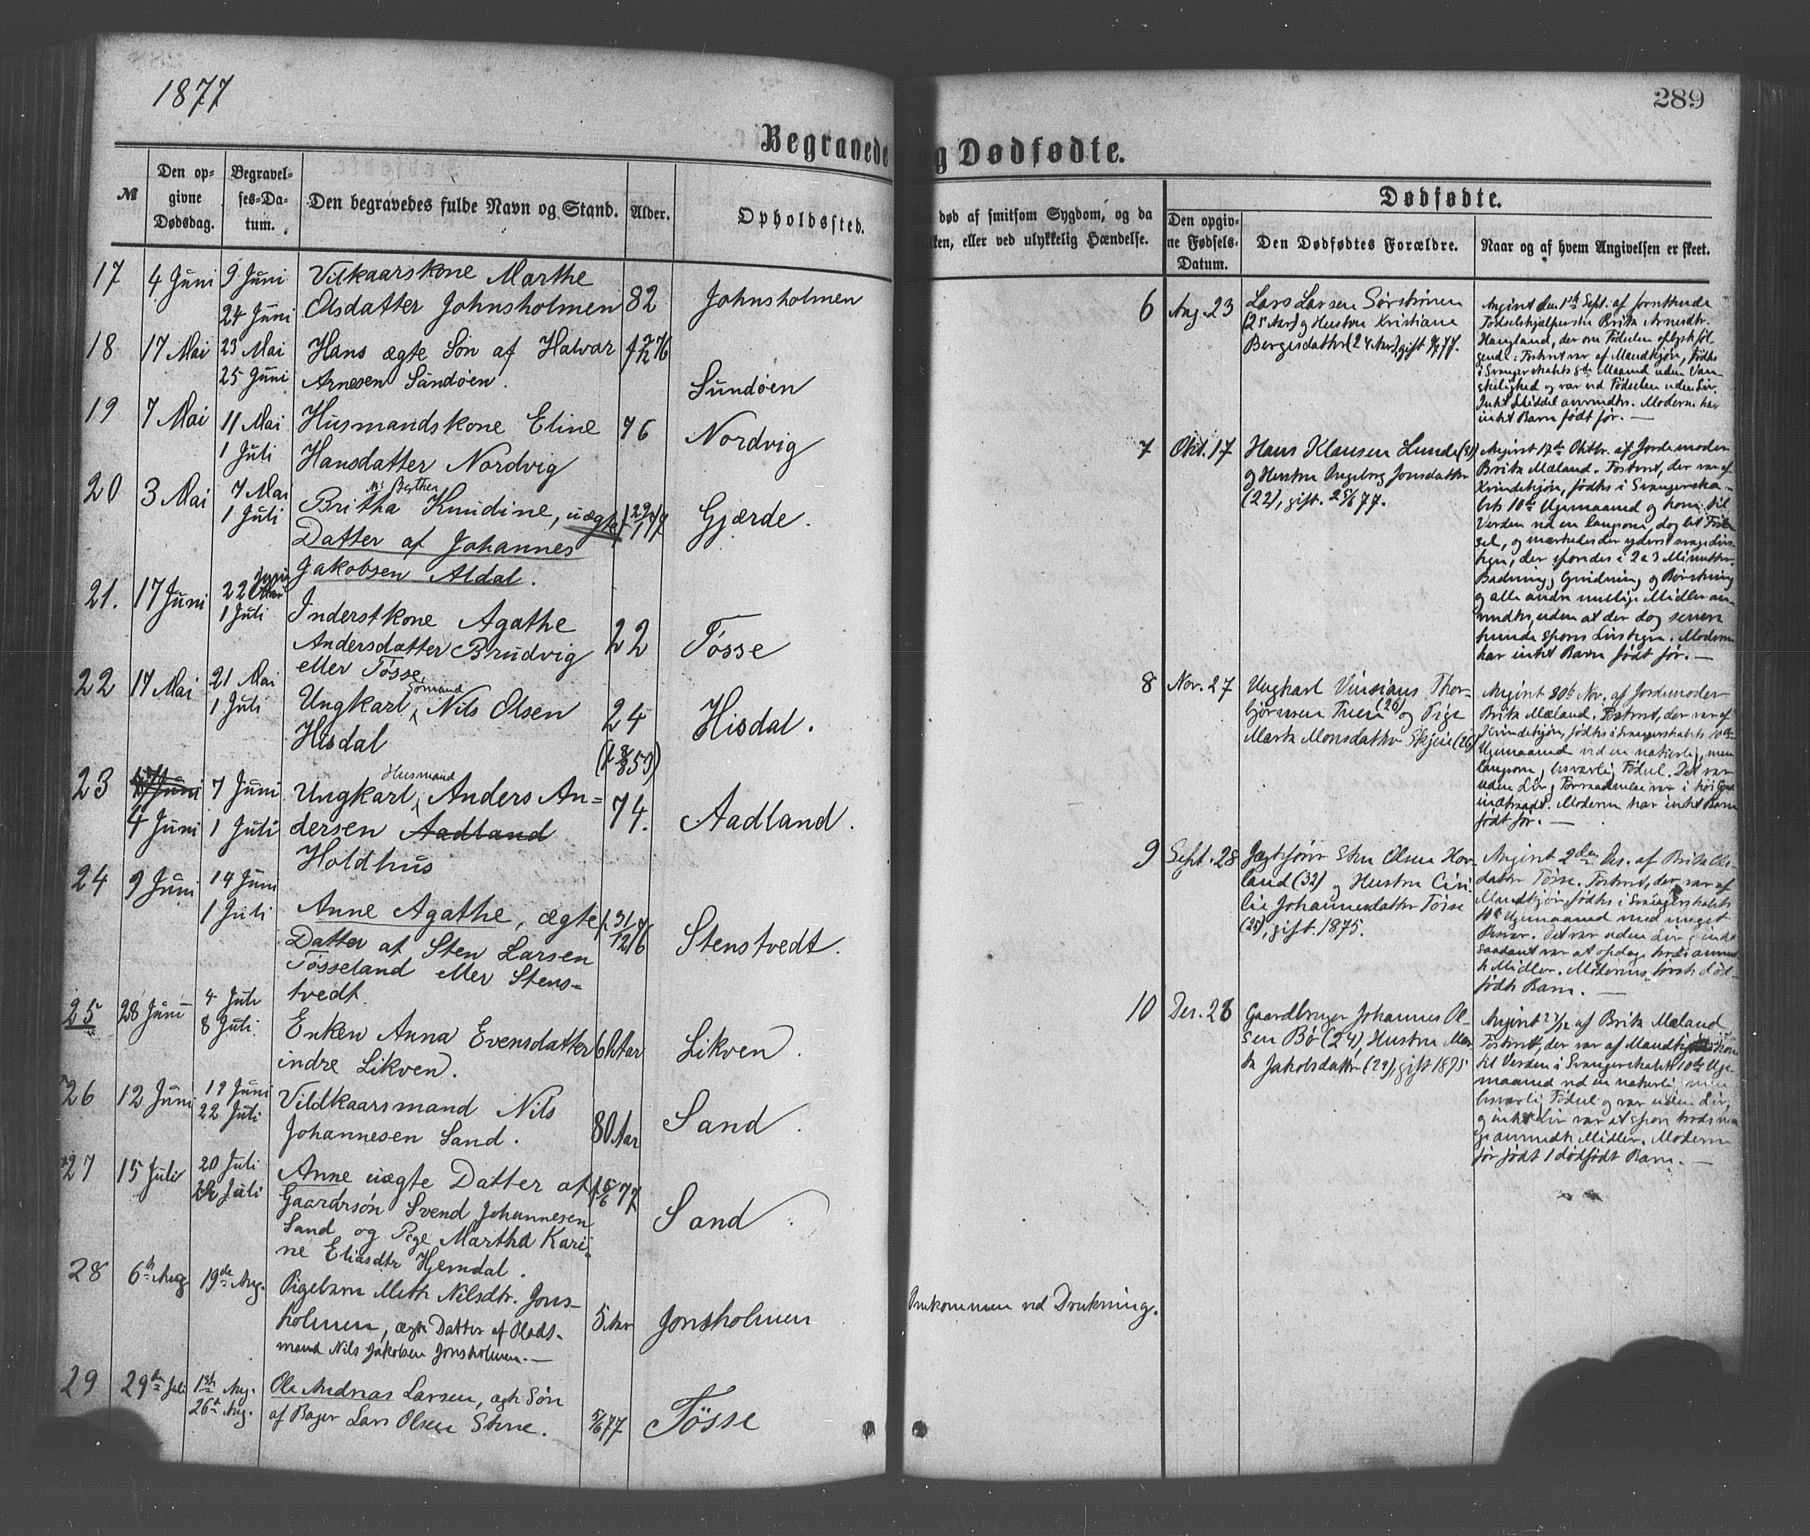 1877
289
Begravede
g Dødfødte.
№
Den op-
givne
Dødsdag.
Begravel-
ses-Da-
tum.
Den begravedes fulde Navn og Stand.
Alder.
Opholdssted.
død af smitsom Sygdom, og da
ken, eller ved ulykkelig Hændelse.
Dødfødte.
Den opgiv-
ne Fødsels-
Datum.
Den Dødfødtes Forældre.
Naar og af hvem Angivelsen er skeet.
17
4 Juni
9 Juni
24 Juni
Vilkaarskone Marthe
Olsdatter Johnsholmen
82
Johnsholmen
18
17 Mai
23 Mai
25 Juni
Hans ægte Søn af Halvar
Arnesen Sundøen.
Sundøen
19
7 Mai
11 Mai
1 Juli
Husmandskone Eline
Hansdatter Nordvig
76
Nordvig
20
3 Mai
7 Mai
1 Juli
Britha Knudine, uægte
Datter af Johannes
Jakobsen Aldal.
Gjærde.
21.
17 Juni
22 Juni
1 Juli
Inderstkone Agathe
Andersdatter Brudvig
eller Tösse
22
Tösse
22
17 Mai
21 Mai
1 Juli
Sømand
Ungkarl Nils Olsen
Hisdal
24
Hisdal.
23
17 Juni
4 Juni
7 Juni
1 Juli
Husmand
Ungkarl Anders An-
dersen Aadland
Holdhus
74.
Aadland.
24
9 Juni
14 Juni
1 Juli
Anne Agathe, ægte
Datter af Sten Larsen
Tösseland eller Stens-
tvedt.
f. 31/12 76
Stenstvedt.
25
28 Juni
4 Juli
8 Juli
Enken Anna Evensdatter
indre Likven.
Aar
Likven.
26
12 Juni
19 Juni
22 Juli
Vildkaarsmand Nils
Johannesen Sand.
80 Aar
Sand.
27
15 Juli
20 Juli
22 Juli
Anne uægte Datter af
Gaardssøn Svend Johannesen
Sand og Pige Martha Kari-
ne Eliasdtr Hjemdal.
Sand.
28
6th Aug
19de Aug.
Pigebarn Meth Nilsdtr. Jons-
holmen, ægte Datter af Plads-
mand Nils Jakobsen Jonsholmen.—
5 Aar
Jonsholmen
Omkommen ved Drukning.
29
29de Juli
1ste Aug.
26de Aug.
Ole Andreas Larsen, ægte Søn
af Bager Lars Olsen
5/6 77
Tösse
6
Aug. 23
Lars Larsen Sørstrønen
(25 Aar) og Hustru Kristiane
Børgesdatter (24 Aar), gift
Angivet den 1ste Sept. af
Fødselshjælperske Brita Arnesdtr.
Haugland, der om Fødselen oplyste føl-
gende: Fosteret var af Mandkjøn, fødtes
i Svangerskabets 8de Maaned uden Van-
skelighed og var ved Fødselen uden Liv.
Intet Middel anvendtes. Moderen har
intet Barn født før.—
7
Okt. 17
Hans Klausen Lunde
og Hustru Ingeborg Jonsdatter
(22), gift. 25/6 77.
Angivet 17de Oktbr. af Jordemoder
Brita Mæland. Fosteret, der var af
Kvindekjøn, fødtes i Svangerska-
bets 10de Ugemaaned og kom til
Verden ved en langsom, dog let Fød-
sel, og mærkedes der yderst svage Livs-
tegn, der sporedes i 2 a 3 Minutter.
Badning, Gnidning, og Børstning
og alle andre mulige Midler an-
vendtes, uden at der dog senere
kunde spores Livstegn. Moderen
har intet Barn født før.—
8
Nov. 27
Ungkarl Vinsians Thor-
bjørnsen (26) og Pige
Marta Monsdatter Skjeie (26)
Angivet 30te Nov. af Jordemoder
Brita Mæland. Fosteret, der var af
Kvindekjøn, fødtes i Svangerskabets 10de
Ugemaaned ved en naturlig, men
langsom, besværlig Fødsel. Det var
uden Liv, Forraadnelse var i høi Grad
indtraadt. Moderen har intet Barn
født før.—
9
Sept. 28
Jægtefører Sten Olsen Hov-
land (32) og Hustru Ceci-
lie Johannesdatter Tösse
(25), gift. 1875.
Angivet 2den Des. af Brita Ols-
datter Tösse. Fosteret, der var af
Mandkjøn, fødtes i Svangerskabets
10de Ugemaaned med meget
Besvær. Det var uden Liv,
saadant var at opdage trods anvend-
te Midler. Moderens første død-
fødte Barn.—
10
Des. 28
Gaardbruger Johannes Ol-
sen Bø (24), Hustru Mar-
ta Jakobsdatter (29), gift 1875
Angivet af Brita Mæland
Fosteret, der var af Mandkjøn kom
til Verden i Svangerskabets 10de Uge-
maaned ved en naturlig, men
besværlig Fødsel og var uden Liv,
og intet Liv var at spore trods
anvendte Midler. Moderen
før født 1 dødfødt Barn.—